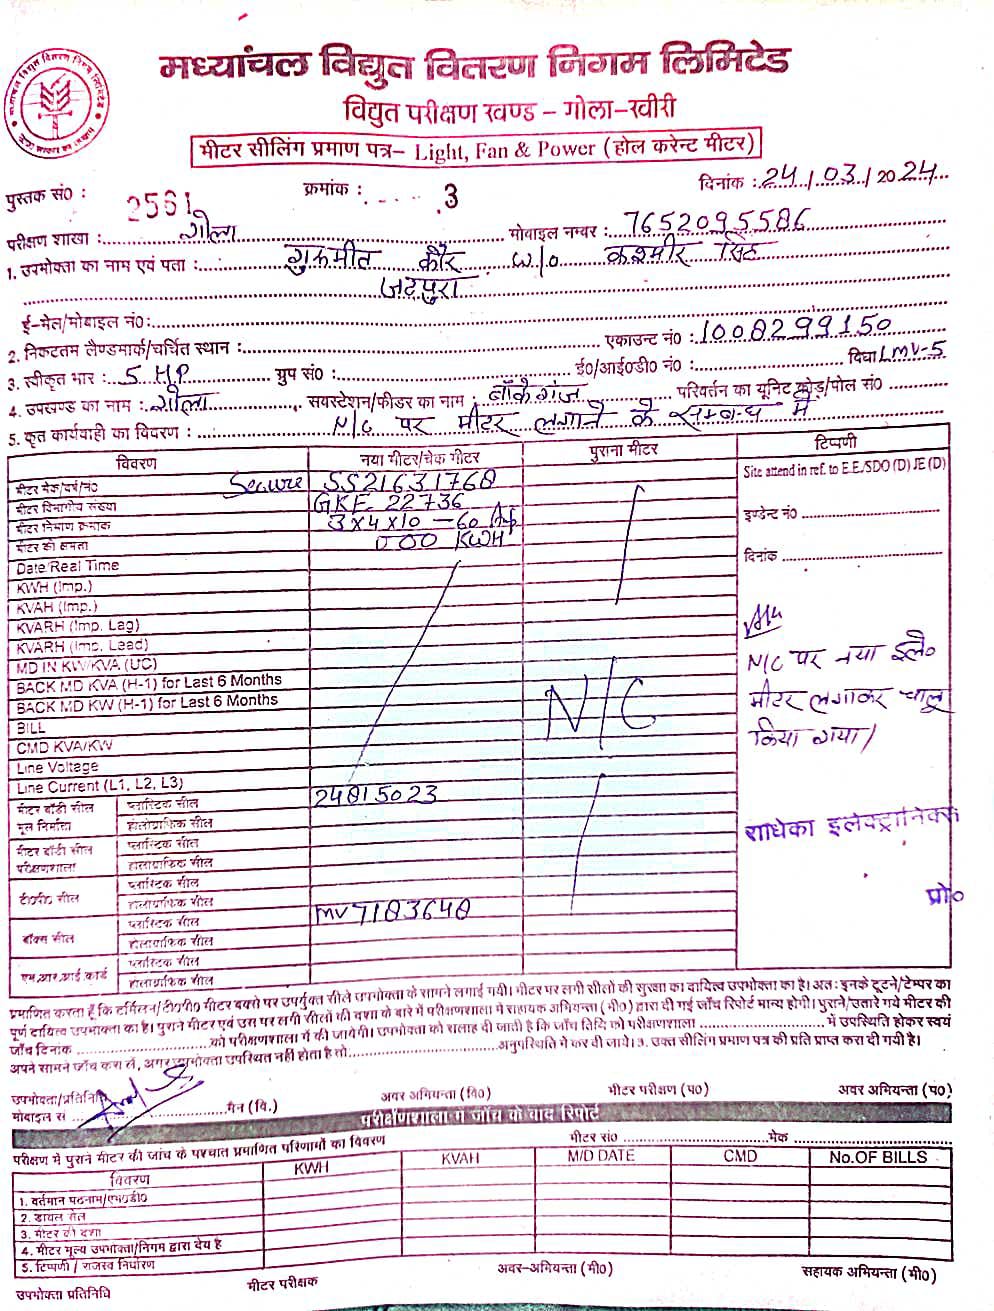 मध्यांचल विद्युत वितरण निगम लिमिटेड
विद्युत परीक्षण खण्ड – गोला-खीरी
मीटर सीलिंग प्रमाण पत्र– Light, Fan & Power (होल करेन्ट मीटर)
पुस्तक सं0 : 2561 क्रमांक : 3 दिनांक : 24/03/2024
परीक्षण शाखा : गोला मोबाइल नम्बर : 7652095586
1. उपभोक्ता का नाम एवं पता : गुरुमीत कौर w/o कश्मीर सिंह
जटपुरा
ई-मेल/मोबाइल नं0:
2. निकटतम लैण्डमार्क/चर्चित स्थान : एकाउन्ट नं0 : 1008299150
3. स्वीकृत भार : 5 H.P ग्रुप सं0 : ई0/आई0डी0 नं0 : विधा LMV-5
4. उपखण्ड का नाम : गोला सबस्टेशन/फीडर का नाम : बाँकेगंज परिवर्तन का यूनिट कोड/पोल सं0
5. कृत कार्यवाही का विवरण : N/C पर मीटर लगाने के सम्बन्ध में
विवरण नया मीटर/चेक मीटर पुराना मीटर टिप्पणी
मीटर मेक/वर्ष/नं0 Secure SS21631768 Site attend in ref. to E.E./SDO (D) JE (D)
मीटर विभागीय संख्या GKE 22736
मीटर निर्माण क्रमांक 3x4x10-60 Ap इण्डेन्ट नं0
मीटर की क्षमता 000 KWH
दिनांक
Date/Real Time
KWH (Imp.)
KVAH (Imp.)
KVARH (Imp. Lag)
KVARH (Imp. Lead)
MD IN KW/KVA (UC)
BACK MD KVA (H-1) for Last 6 Months
BACK MD KW (H-1) for Last 6 Months
BILL
CMD KVA/KW
Line Voltage
Line Current (L1, L2, L3)
N/C
N/C पर नया इलै०
मीटर लगाकर चालू
किया गया/
मीटर बॉडी सील प्लास्टिक सील 24815023
मूल निर्माता होलोग्राफिक सील
राधिका इलेक्ट्रानिक्स
मीटर बॉडी सील प्लास्टिक सील
परीक्षणशाला होलोग्राफिक सील
टी0पी0 सील प्लास्टिक सील
होलोग्राफिक सील
प्रो०
बॉक्स सील प्लास्टिक सील MV7183648
होलोग्राफिक सील
एम.आर.आई.कार्ड प्लास्टिक सील
होलोग्राफिक सील
प्रमाणित करता हूँ कि टर्मिनल/टी0पी0 मीटर बक्से पर उपर्युक्त सीले उपभोक्ता के सामने लगाई गयी। मीटर पर लगी सीलों की सुरक्षा का दायित्व उपभोक्ता का है। अतः इनके टूटने/टेम्पर का
पूर्ण दायित्व उपभोक्ता का है। पुराने मीटर एवं उस पर लगी सीलों की दशा के बारे में परीक्षणशाला में सहायक अभियन्ता (मी0) द्वारा दी गई जाँच रिपोर्ट मान्य होगी। पुराने/उतारे गये मीटर की
जाँच दिनांक को परीक्षणशाला में की जायेगी। उपभोक्ता को सलाह दी जाती है कि जाँच तिथि को परीक्षणशाला में उपस्थिति होकर स्वयं
अपने सामने जाँच करा लें, अगर उपभोक्ता उपस्थित नहीं होता है तो अनुपस्थिति में कर दी जाये। 3. उक्त सीलिंग प्रमाण पत्र की प्रति प्राप्त करा दी गयी है।
उपभोक्ता/प्रतिनिधि अवर अभियन्ता (वि0) मीटर परीक्षण (प0) अवर अभियन्ता (प0)
मोबाइल सं मैन (वि.)
परीक्षणशाला में जाँच के बाद रिपोर्ट
परीक्षण में पुराने मीटर की जाँच के पश्चात प्रमाणित परिणामों का विवरण मीटर सं0 मेक
विवरण KWH KVAH M/D DATE CMD No.OF BILLS
1. वर्तमान पठनाम/एम0डी0
2. डायल टेस्ट
3. मीटर की दशा
4. मीटर मूल्य उपभोक्ता/निगम द्वारा देय है
5. टिप्पणी / राजस्व निर्धारण
उपभोक्ता प्रतिनिधि मीटर परीक्षक अवर-अभियन्ता (मी0) सहायक अभियन्ता (मी0)